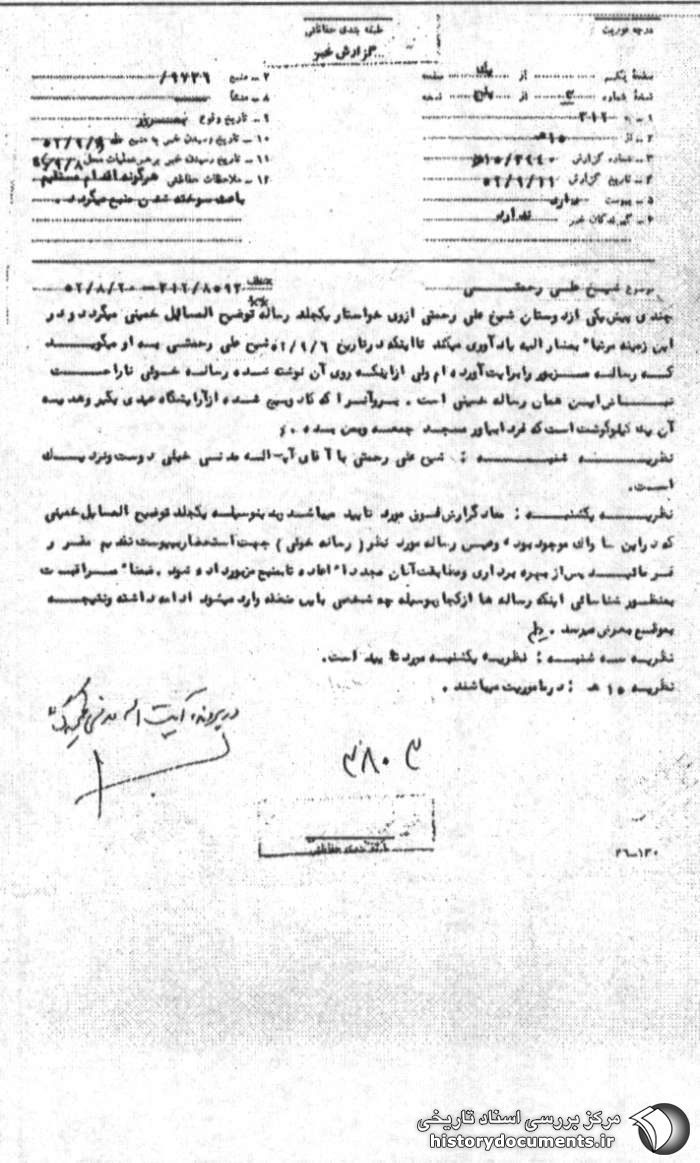 درجه فوریت
طبقه بندی حفاظتی
گزارش خبر
صفحه یکم از یک صفحه
نسخه شماره ۲ از پنج نسخه
۱ - به ۳۱۲
۲ - از ۱۵ هـ
۳ - شماره گزارش ۱۵/۲۴۴۰هـ
۴ - تاریخ گزارش ۵۲/۹/۱۱
۵ - پیوست دارد
۶ - گیرندگان خبر ندارد
۷ - منبع ۹۶۳۹/
۸ - منشأ
۹ - تاریخ وقوع بمرور
۱۰ - تاریخ رسیدن خبر به منبع ۵۲/۹/۶
۱۱ - تاریخ رسیدن خبر برهبر عملیات محل ۵۲/۹/۸
۱۲ - ملاحظات حفاظتی هرگونه اقدام مستقیم
باعث سوخته شدن منبع میگردد .
موضوع شیخ علی رحمتی
عطف ۳۱۲/۸۵۹۲ - ۵۲/۸/۲۰
چندی پیش یکی ازدوستان شیخ علی رحمتی ازوی خواستار یکجلد رساله توضیح المسایل خمینی میگردد و در
این زمینه مرتبا" بمشارالیه یادآوری میکند تا اینکه درتاریخ ۵۲/۹/۶ شیخ علی رحمتی بـه او میگویـد
کـه رسالـه مـزبور رابرایت آورده ام ولی ازاینکه روی آن نوشته شـده رسالـه خـوئی ناراحـت
نبـاش ایـن همان رساله خمینی است . پـول آنـرا که کادوپیچ شده ازآرایشگاه مهدی بگیر وهدیـه
آن یک کیلوگوشت است که فردا بیاور مسجد جمعـه وبمن بـده .
نظریـه شنبـه : شیخ علی رحمتی با آقای آیـت الـله مدنـی خیلی دوست ونزدیـک
اسـت .
نظریـه یکشنبـه : مفاد گزارش فـوق مورد تایید میباشد بدینوسیلـه یکجلد توضیح المسایل خمینی
که دراین ساواک موجود بوده وعیـن رساله مورد نظر ( رساله خوئی ) جهت استحضار بپیوست تقدیـم مقـرر
فرمائیـد پس از بهره برداری ومطابقت آنان مجددا" اعاده تا بمنبع مزبورداده شود . ضمنا" مـراقبـت
بمنظور شناسائی اینکه رساله ها ازکجا بوسیله چه شخصی باین منطقه وارد میشود ادامه داشته ونتیجـه
بموقع بعرض میرسد .
نظریـه سـه شنبـه : نظریـه یکشنبـه مورد تایید است .
نظریـه ۱۵ هـ : درماموریت میباشند .
در پرونده آیت اله مدنی
۳۸۰۳
طبقه بندی حفاظتی
۲۶-۱۳۰
مرکز بررسی اسناد تاریخی
historydocuments.ir